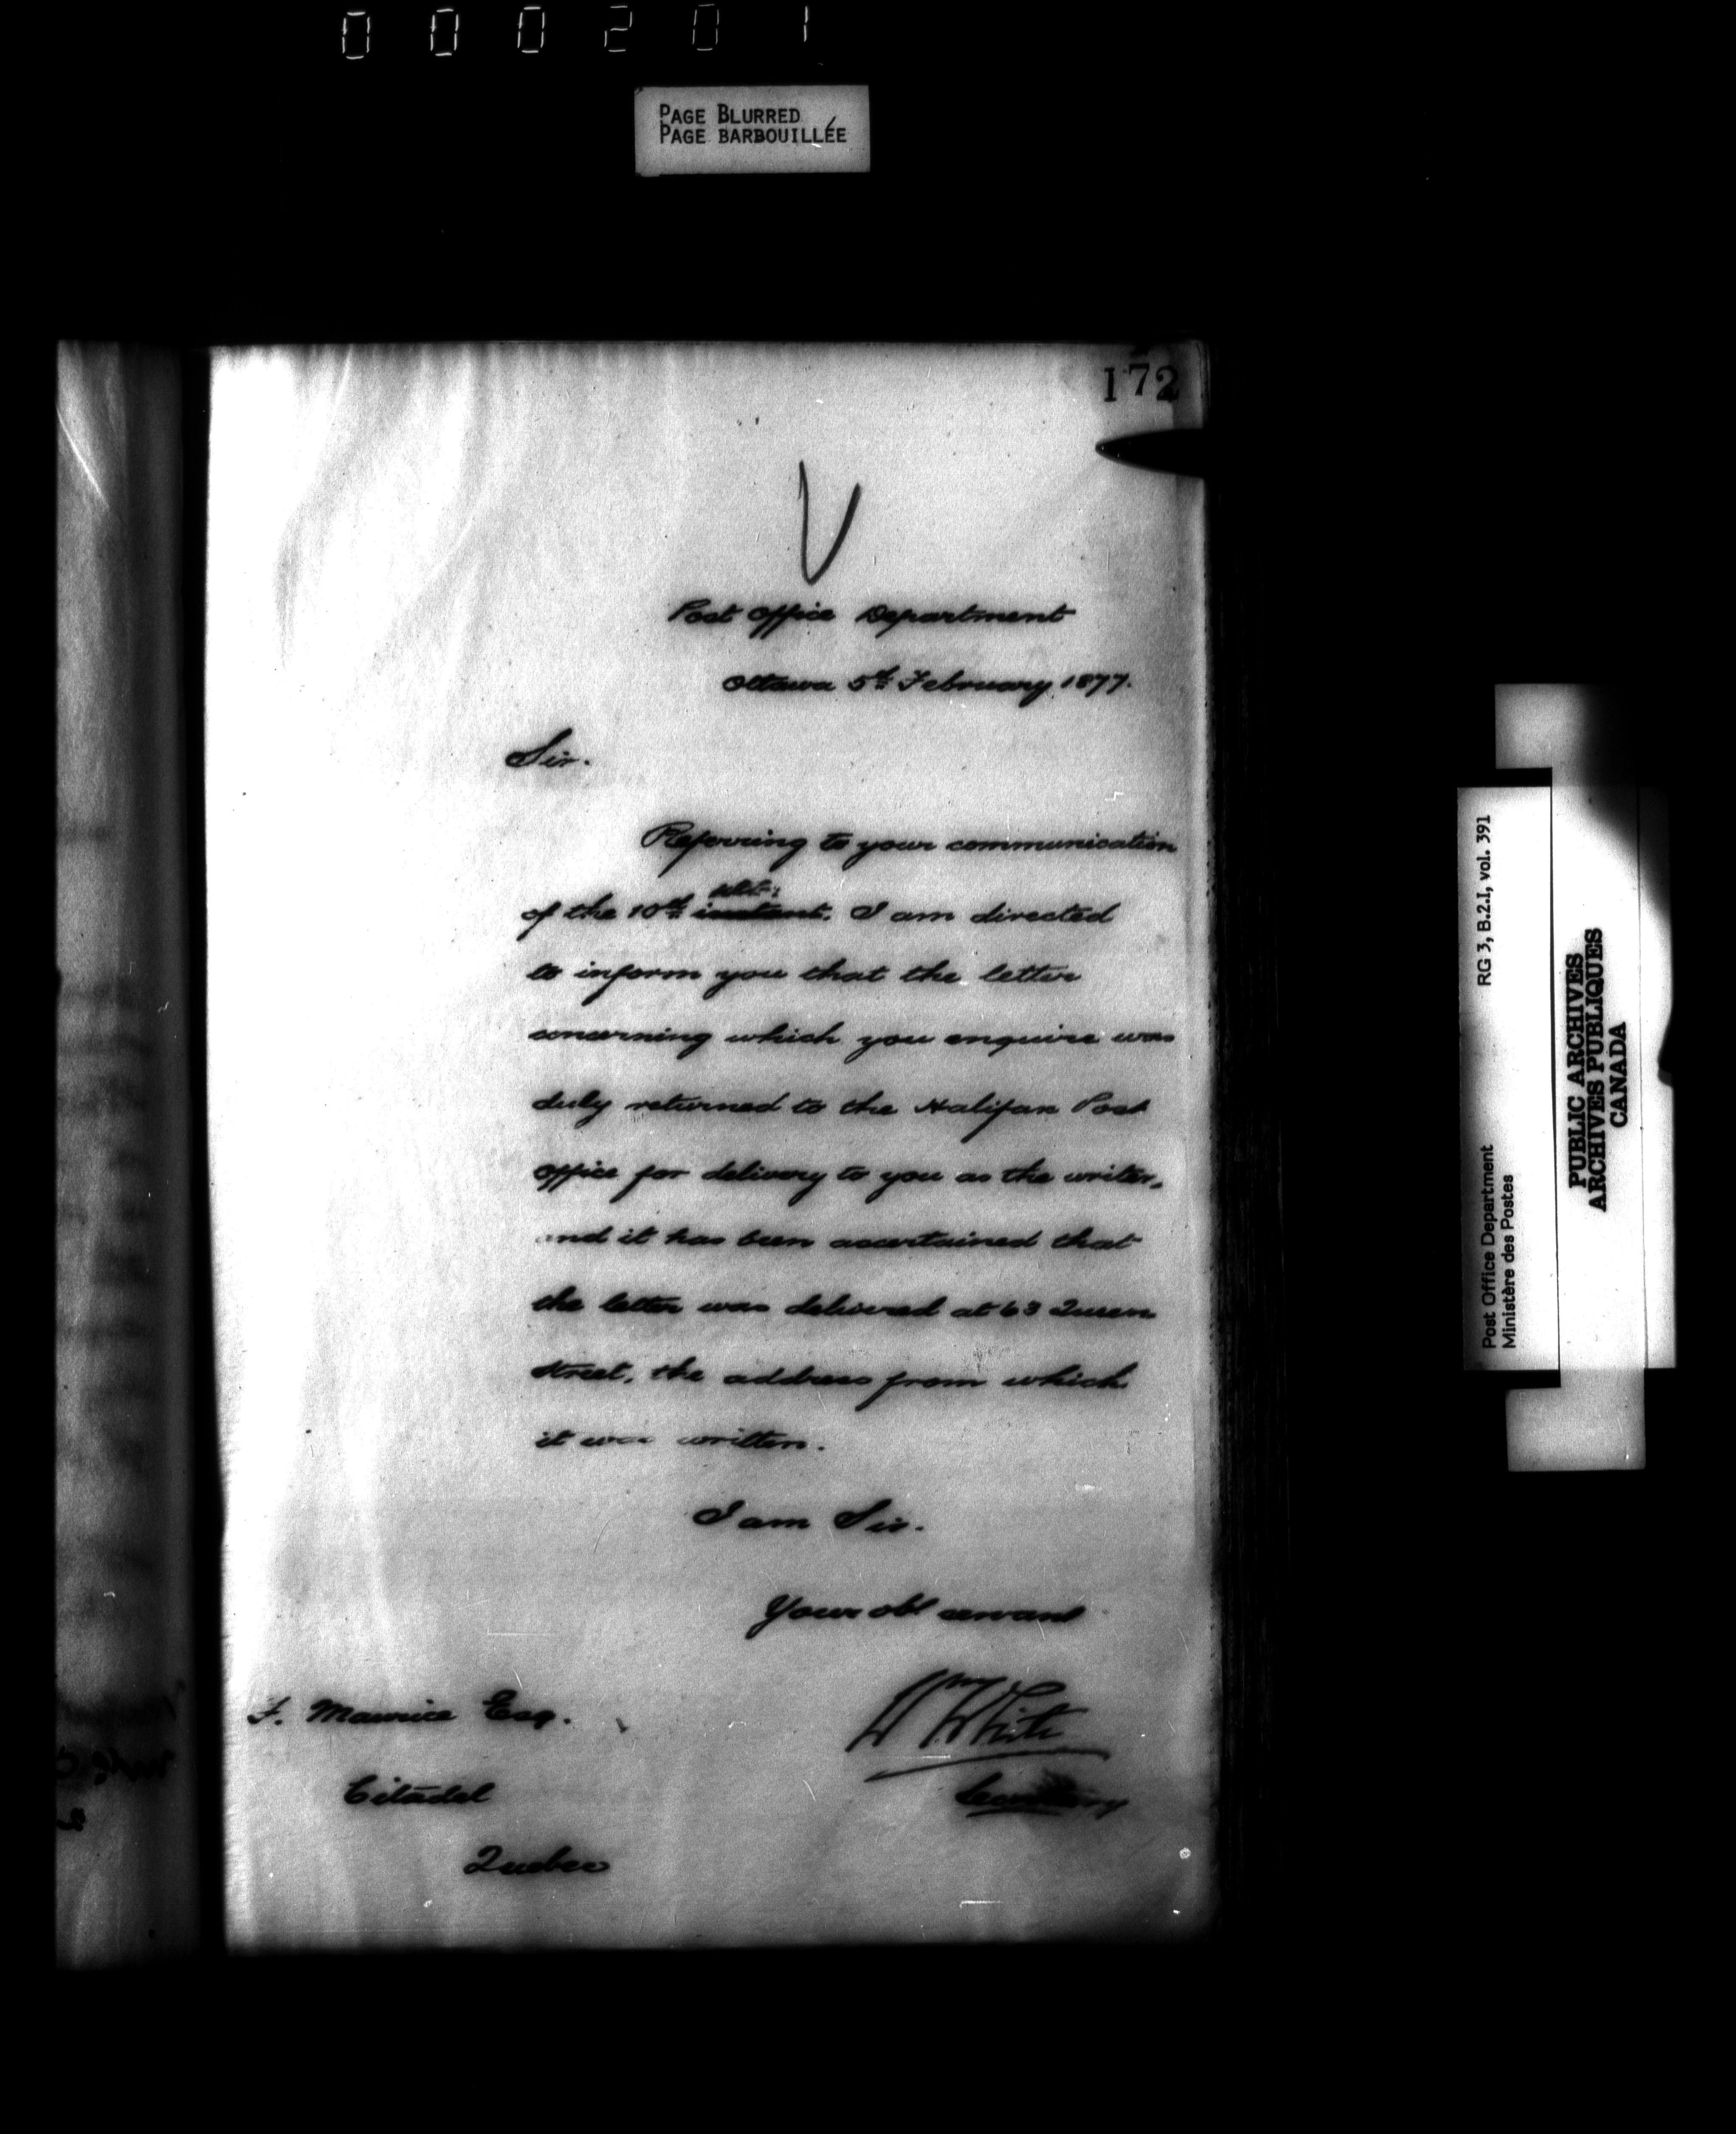 000201
PAGE BLURRED
PAGE BARBOUILLÉE
172
Post Office Department
Ottawa 5th February 1877.
Sir.
Referring to your communication
ult:
of the 10th instant. I am directed
to inform you that the letter
concerning which you enquire was
duly returned to the Halifax Post
Office for delivery to you as the writer,
and it has been ascertained that
the letter was delivered at 63 Queen
Street, the address from which
it was written.
I am Sir.
Your obt servant
Wm White
Secretary
F. Maurice Esq.
Citadel
Quebec
RG 3, B.2.I, vol. 391
Post Office Department
Ministère des Postes
PUBLIC ARCHIVES
ARCHIVES PUBLIQUES
CANADA